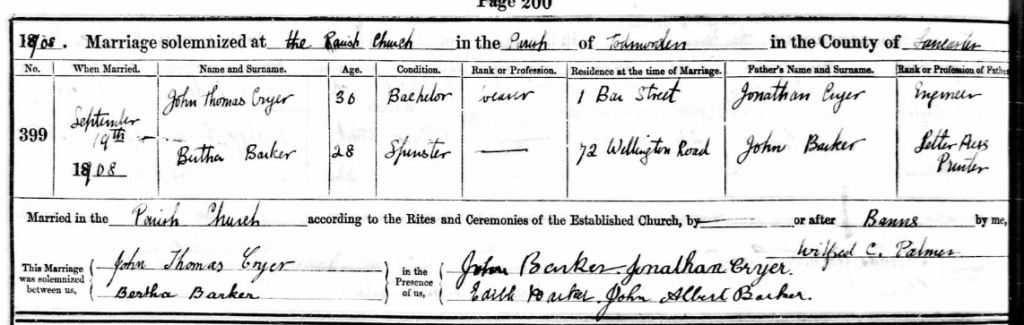 Page 200
1908. Marriage solemnized at the Parish Church in the Parish of Todmorden in the County of Lancaster
No. When Married. Name and Surname. Age. Condition. Rank or Profession. Residence at the time of Marriage. Father's Name and Surname. Rank or Profession of Father
399 September 19th 1908 John Thomas Cryer 30 Bachelor weaver 1 Bar Street Jonathan Cryer Engineer
Bertha Barker 28 Spinster — 72 Wellington Road John Barker Letter Press Printer
Married in the Parish Church according to the Rites and Ceremonies of the Established Church, by — or after Banns by me,
Wilfred C. Palmer
This Marriage was solemnized between us, John Thomas Cryer in the Presence of us, John Barker Jonathan Cryer.
Bertha Barker Edith Barker. John Albert Barker.